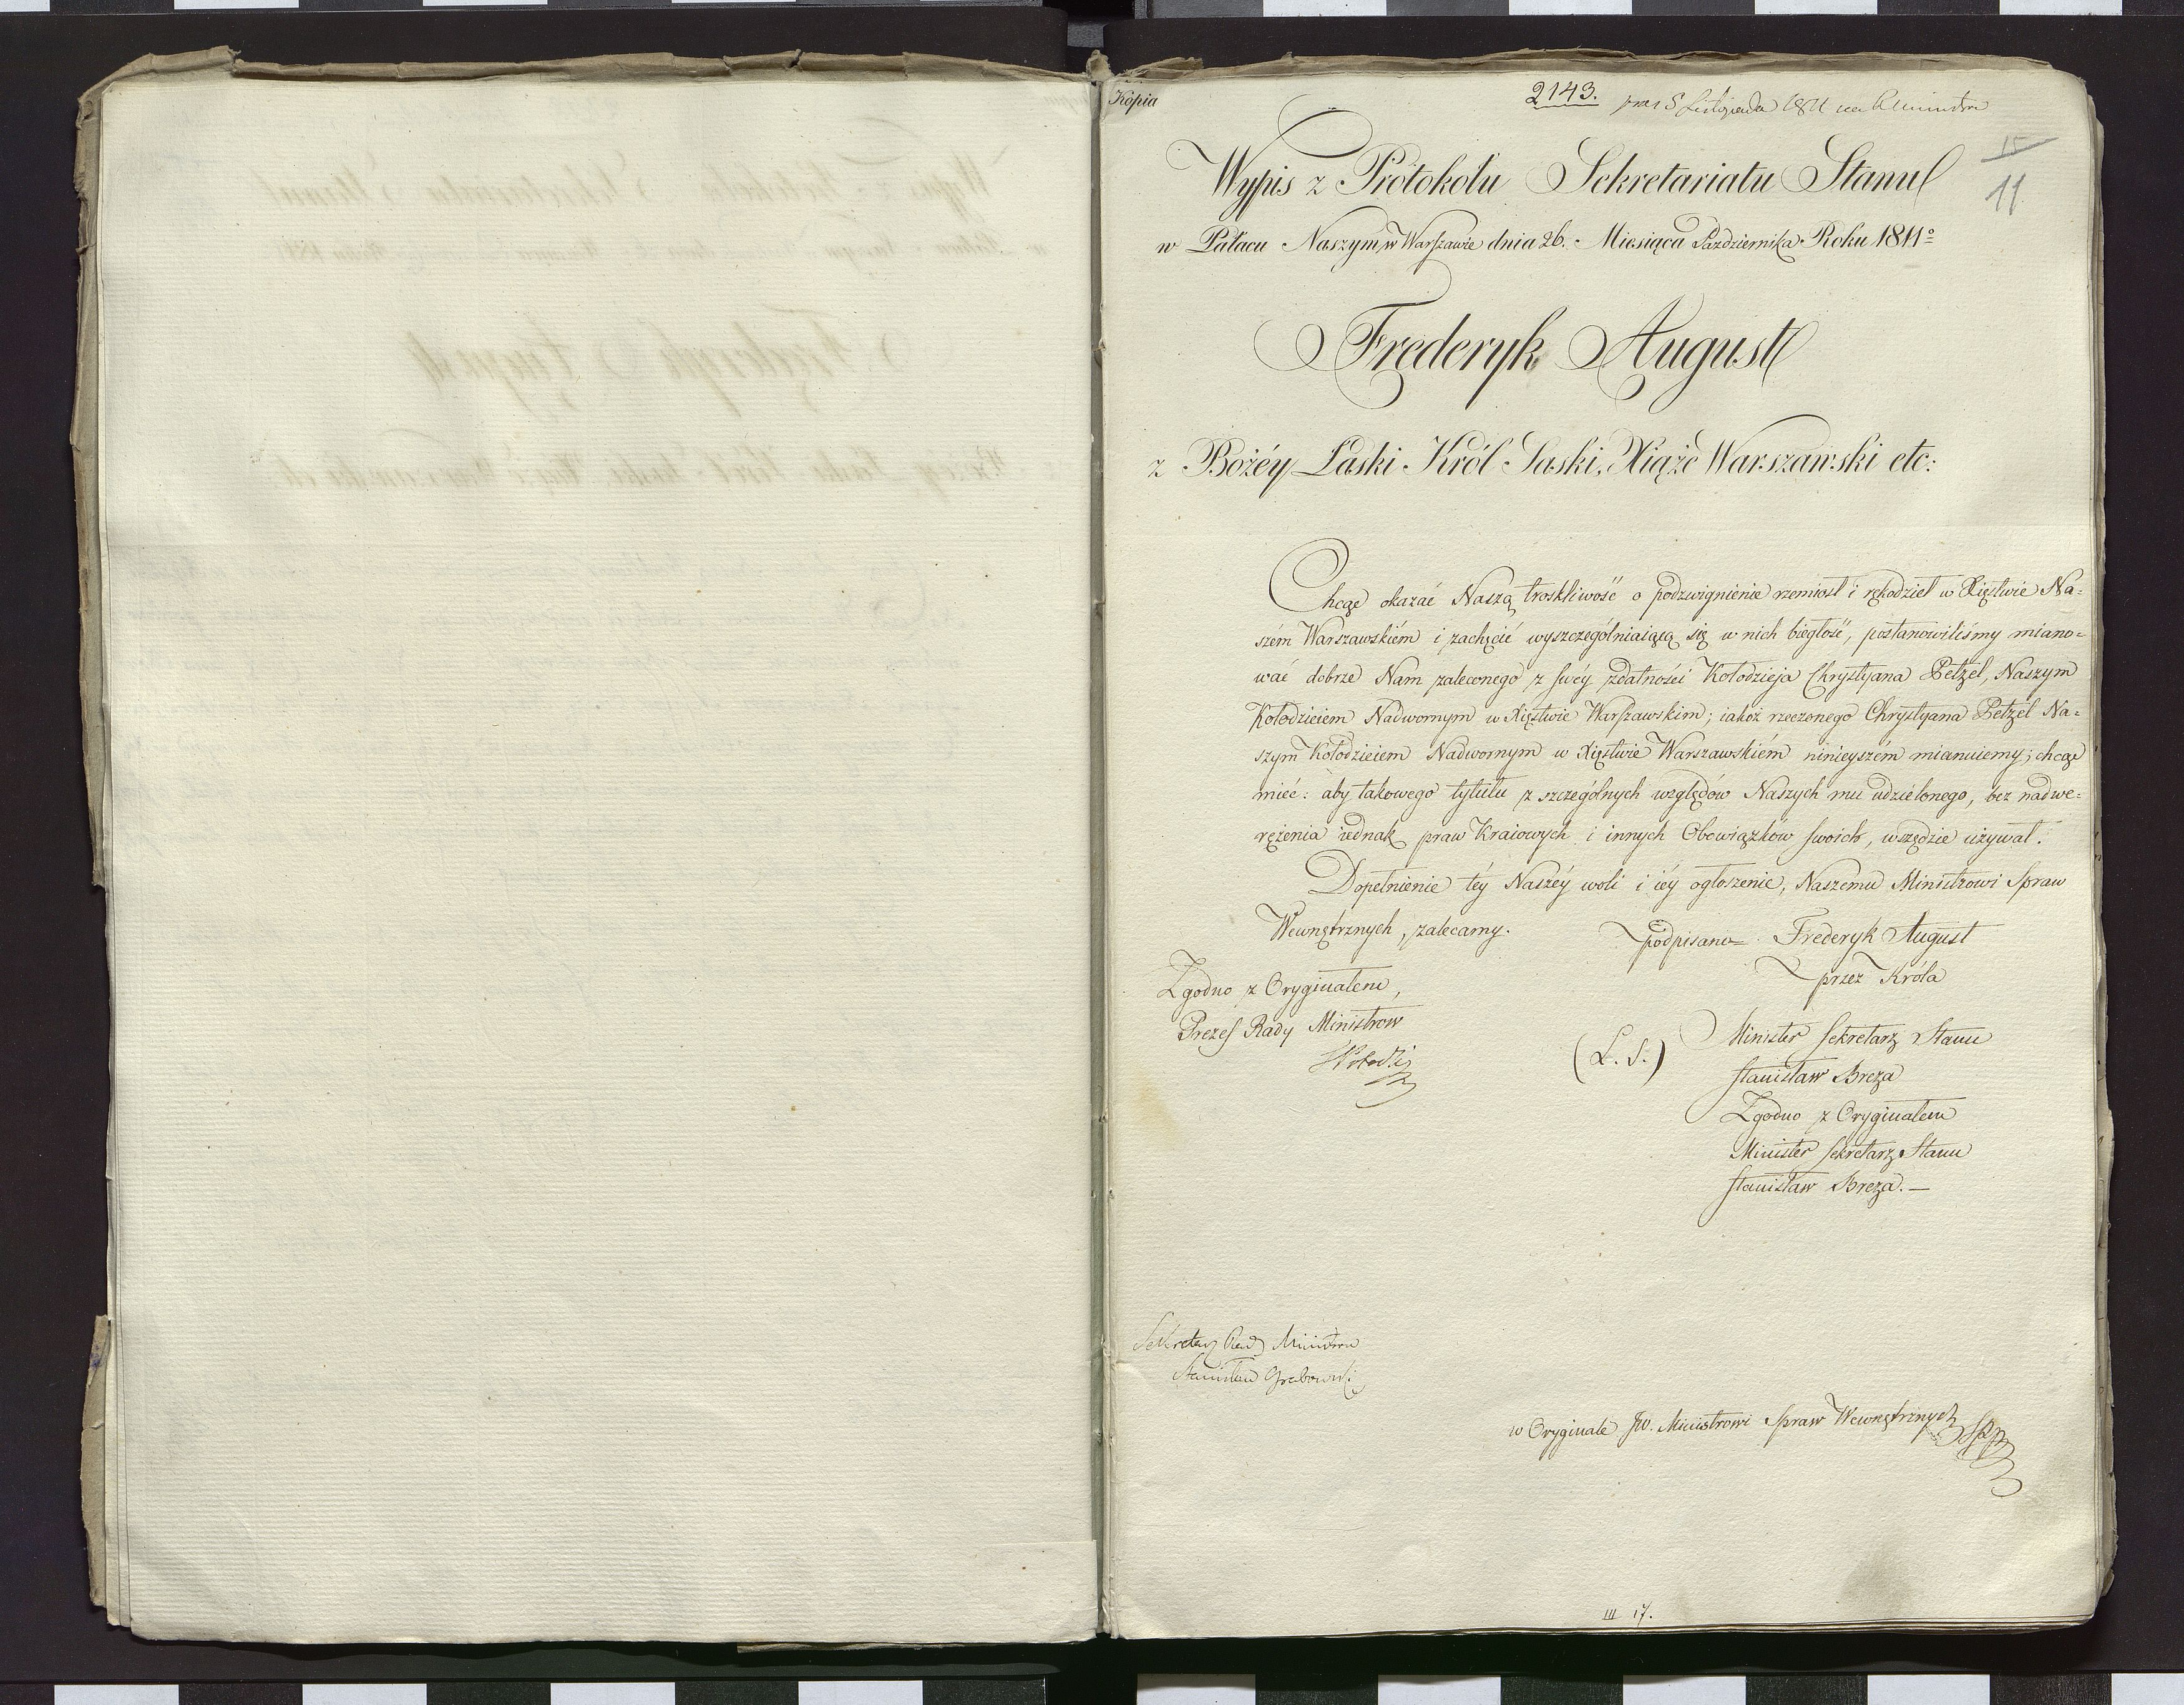 Kopia
2143.
15
11
Wypis z Protokołu Sekretariatu Stanu
w Pałacu Naszym w Warszawie dnia 26. Miesiąca Października Roku 1811º
Frederyk August
z Bożéy Łaski Król Saski, Xiąże Warszawski etc:
Chcąc okazać Naszą troskliwość o podzwignienie rzemiosł i rękodzieł w Xięstwie Na=
szém Warszawskiém i zachęcić wyszczególniaiącą się w nich biegłość, postanowiliśmy miano=
wać dobrze Nam zaleconego z swéy zdatności Kołodzieja Chrystyana Petzel, Naszym
Kołodzieiem Nadwornym w Xięstwie Warszawskim; iakoż rzeczonego Chrystyana Petzel Na=
szym Kołodzieiem Nadwornym w Xięstwie Warszawskiém ninieyszém mianuiemy; chcąc
mieć: aby takowego tytułu z szczególnych względów Naszych mu udzielonego, bez nadwe=
rężenia iednak praw Kraiowych i innych Obowiązkow swoich, wszędzie używał.
Dopełnienie téy Naszéy woli i iéy ogłoszenie, Naszemu Ministrowi Spraw
Wewnętrznych, zalecamy.
podpisano= Frederyk August
przez Króla
Zgodno z Oryginałem,
Prezes Rady Ministrow
(L. S.)
Minister Sekretarz Stanu
Stanisław Breza
Zgodno z Oryginałem
Minister Sekretarz Stanu
Stanisław Breza. —
Sekretarz Rady Ministrow
Stanisław Grabowski
w Oryginale JW. Ministrowi Spraw Wewnętrznych
III 17.